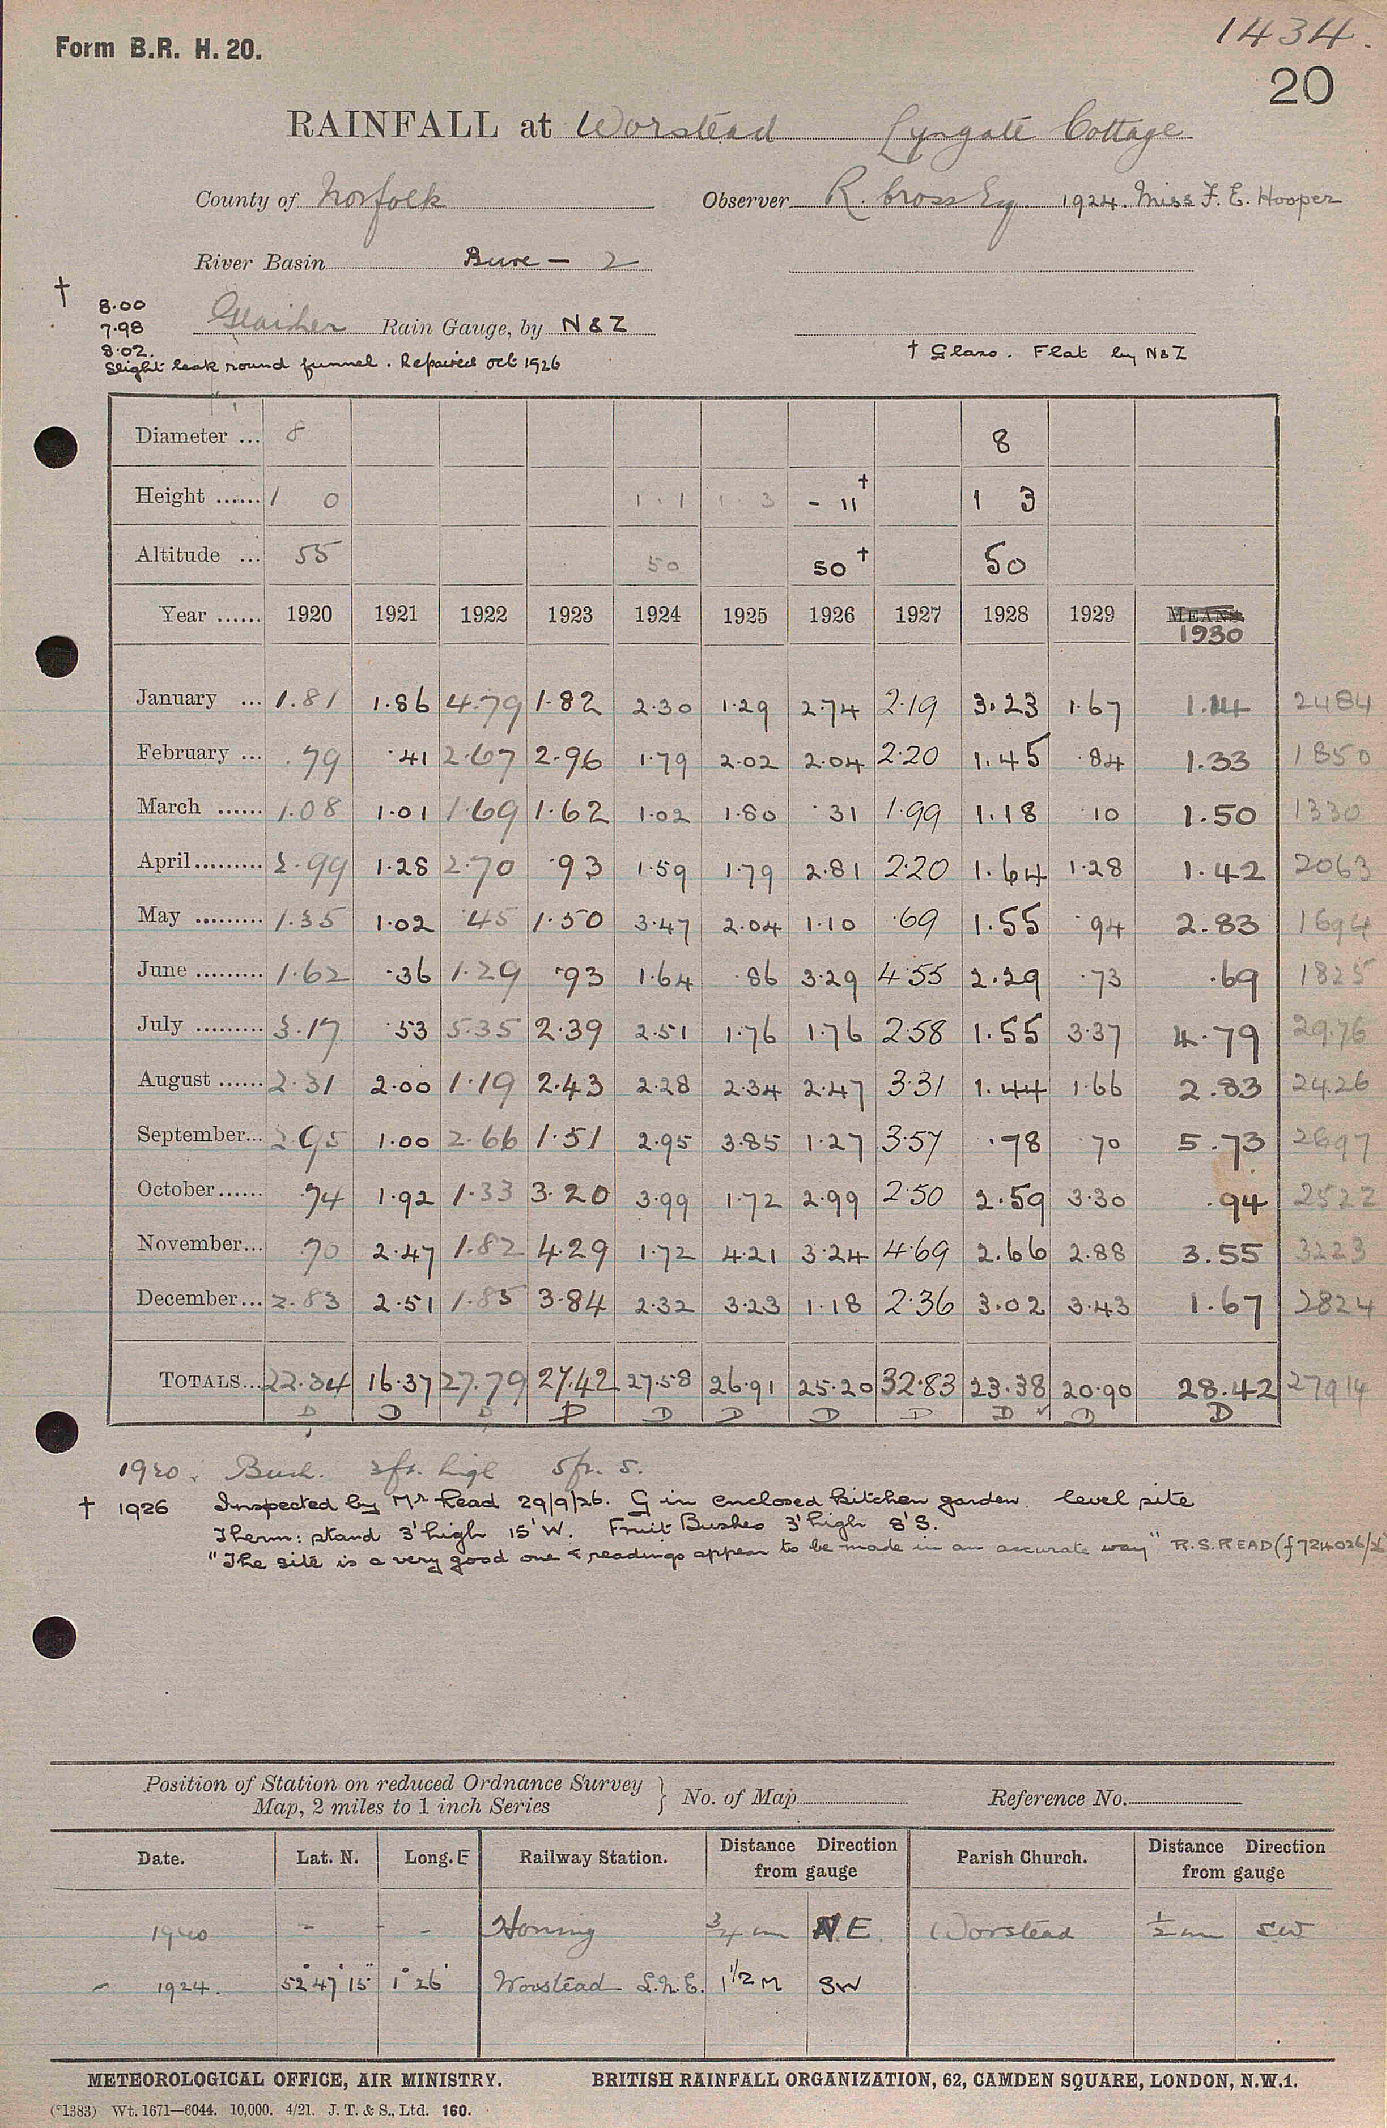 Form B.R. H. 20.
1434.
20
RAINFALL at Worstead Lyngate Cottage
County of Norfolk Observer R. Cross Esq 1924. Miss F. E. Hooper
River Basin Bure - 2
† 8.00
7.98
8.02.
Glaisher Rain Gauge, by N & Z
† Glass. Flat by N & Z
Slight leak round funnel. Repaired Oct 1926
Diameter ... 8 8
Height ...... 1 0 1.1 1.3 - 11† 1 3
Altitude ... 55 50 50† 50
Year ...... 1920 1921 1922 1923 1924 1925 1926 1927 1928 1929 MEANS 1930
January ... 1.81 1.86 4.79 1.82 2.30 1.29 2.74 2.19 3.23 1.67 1.14 2484
February ... .79 .41 2.67 2.96 1.79 2.02 2.04 2.20 1.45 .84 1.33 1850
March ...... 1.08 1.01 1.69 1.62 1.02 1.80 .31 1.99 1.18 10 1.50 1330
April......... 2.99 1.28 2.70 .93 1.59 1.79 2.81 2.20 1.64 1.28 1.42 2063
May ......... 1.35 1.02 45 1.50 3.47 2.04 1.10 .69 1.55 .94 2.83 1694
June ......... 1.62 .36 1.29 .93 1.64 .86 3.29 4.55 2.29 .73 .69 1825
July ......... 3.17 .53 5.35 2.39 2.51 1.76 1.76 2.58 1.55 3.37 4.79 29.76
August ...... 2.31 2.00 1.19 2.43 2.28 2.34 2.47 3.31 1.44 1.66 2.83 24.26
September... 2.95 1.00 2.66 1.51 2.95 3.85 1.27 3.57 .78 70 5.73 2697
October...... .74 1.92 1.33 3.20 3.99 1.72 2.99 2.50 2.59 3.30 .94 2522
November... .70 2.47 1.82 4.29 1.72 4.21 3.24 4.69 2.66 2.88 3.55 3223
December... 2.83 2.51 1.85 3.84 2.32 3.23 1.18 2.36 3.02 3.43 1.67 2824
TOTALS... 22.34 16.37 27.79 27.42 27.58 26.91 25.20 32.83 23.38 20.90 28.42 27914
D D D D D D D D D ✓ D D
1920. Bush. 2ft. high 5ft. S.
† 1926 Inspected by Mr Read 29/9/26. G in enclosed kitchen garden. level site
Therm: stand 3' high 15' W. Fruit Bushes 3' high 8' S.
"The site is a very good one & readings appear to be made in an accurate way" R.S. READ (f 724026/26
Position of Station on reduced Ordnance Survey
Map, 2 miles to 1 inch Series } No. of Map Reference No.
Date. Lat. N. Long. E Railway Station. Distance Direction from gauge Parish Church. Distance Direction from gauge
1920 - - Honing 3/4 m N.E. Worstead 1/2 m SW
1924. 52° 47' 15" 1° 26' Worstead L.N.E. 1 1/2 M SW
METEOROLOGICAL OFFICE, AIR MINISTRY. BRITISH RAINFALL ORGANIZATION, 62, CAMDEN SQUARE, LONDON, N.W.1.
(*1383) Wt. 1671—6044. 10,000. 4/21. J. T. & S., Ltd. 160.